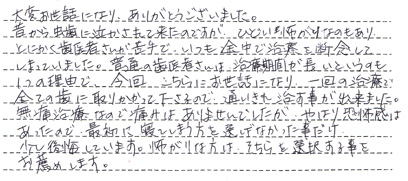 大変お世話になり、ありがとうございました。
昔から虫歯に泣かされて来たのですが、ひどい怖がりなのもあり
とにかく歯医者さんが苦手で、いつも途中で治療を断念して
しまっていました。普通の歯医者さんは、治療期間が長いというのも
1つの理由で、今回、こちらにお世話になり、一回の治療で
全ての歯に取りかかって下さるので、通いきり治す事が出来ました。
無痛治療なので痛みはありませんでしたが、やはり恐怖感は
あったので、最初に寝てしまう方を選ばなかった事だけ
少し後悔しています。怖がりな方は、そちらを選択する事を
お薦めします。